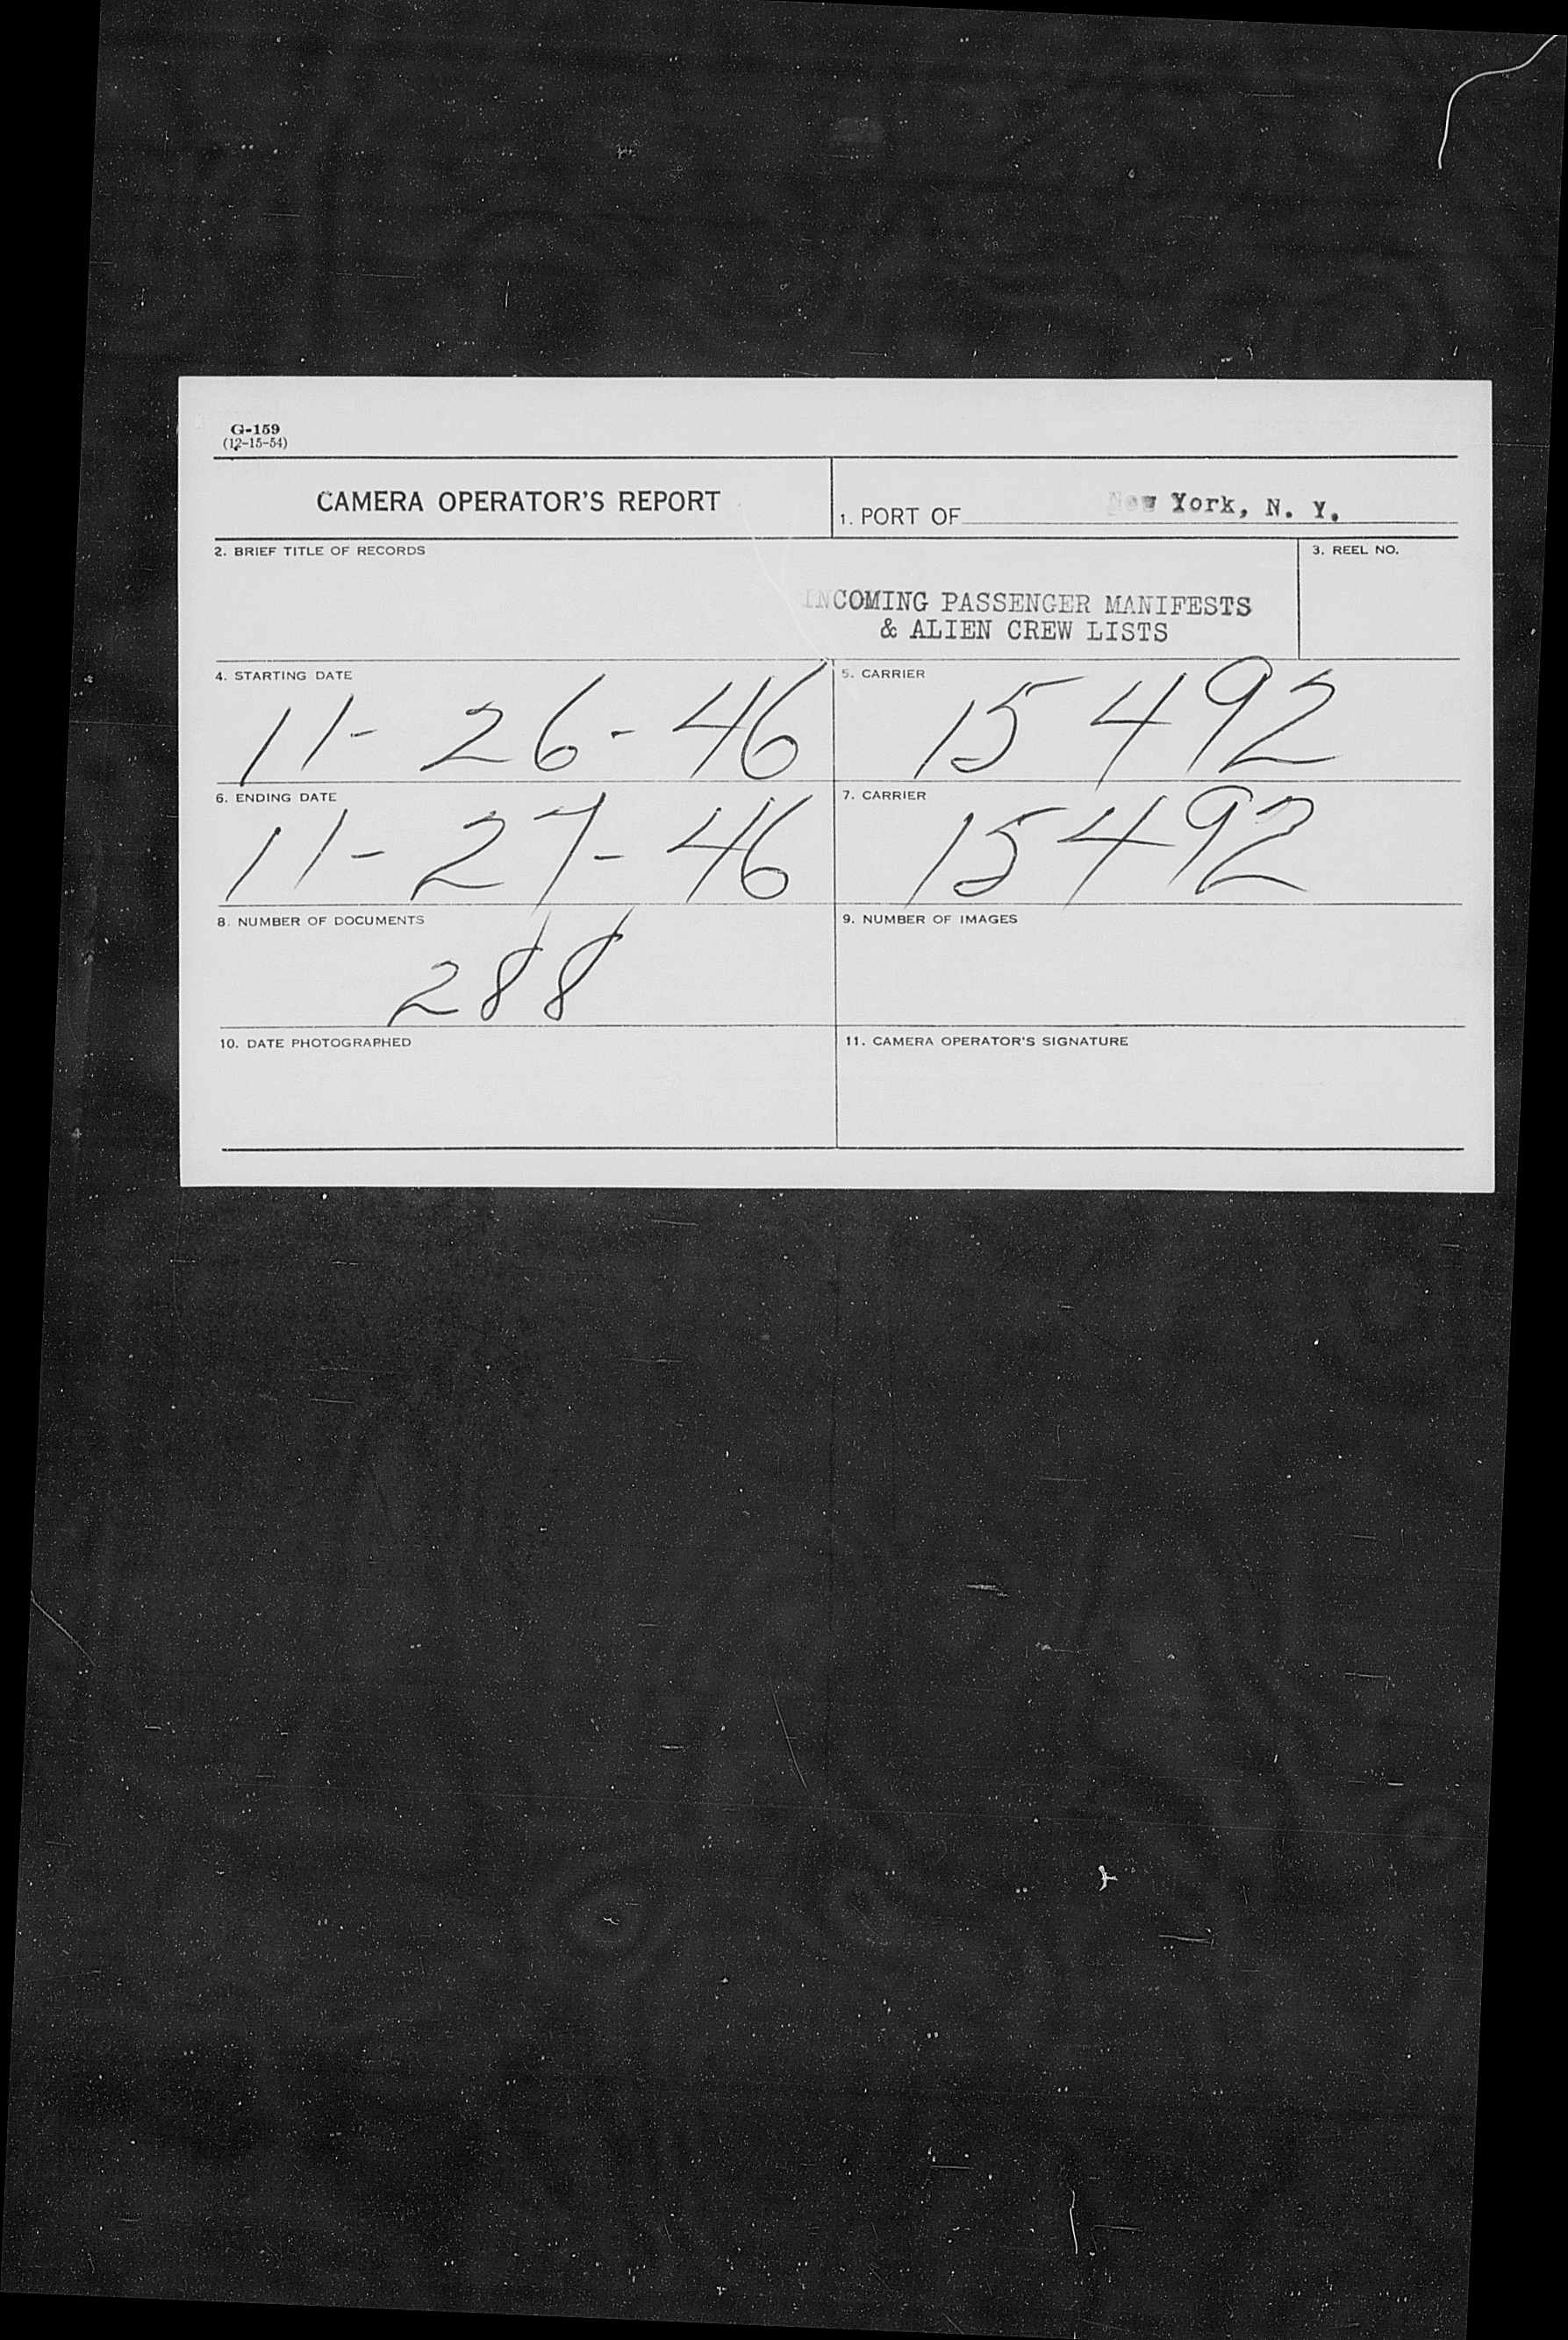 G-159
(12-15-54)
CAMERA OPERATOR'S REPORT
1. PORT OF New York, N. Y.
2. BRIEF TITLE OF RECORDS
INCOMING PASSENGER MANIFESTS
& ALIEN CREW LISTS
3. REEL NO.
4. STARTING DATE
11-26-46
5. CARRIER
15492
6. ENDING DATE
11-27-46
7. CARRIER
15492
8. NUMBER OF DOCUMENTS
288
9. NUMBER OF IMAGES
10. DATE PHOTOGRAPHED
11. CAMERA OPERATOR'S SIGNATURE